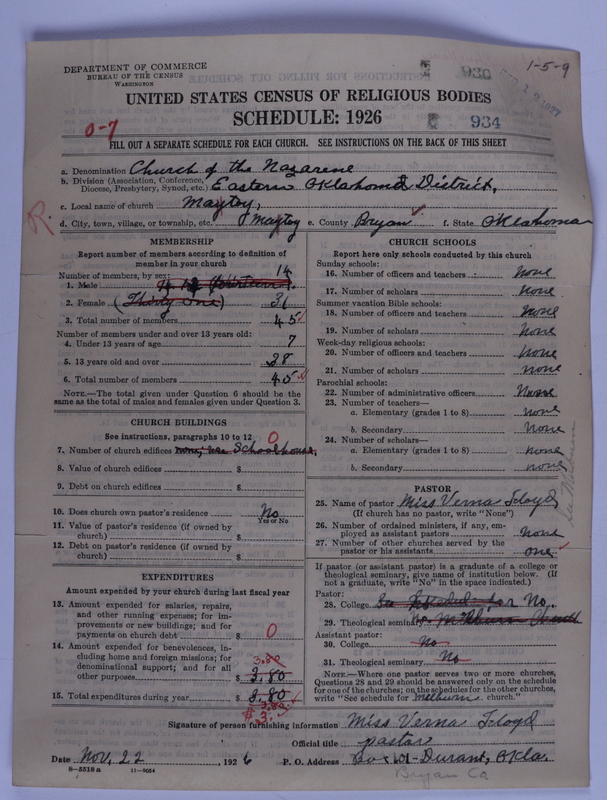 DEPARTMENT OF COMMERCE
BUREAU OF THE CENSUS
WASHINGTON
930
1-5-9
UNITED STATES CENSUS OF RELIGIOUS BODIES
SCHEDULE: 1926
934
0-7
FILL OUT A SEPARATE SCHEDULE FOR EACH CHURCH. SEE INSTRUCTIONS ON THE BACK OF THIS SHEET
a. Denomination Church of the Nazarene
b. Division (Association, Conference, Diocese, Presbytery, Synod, etc.) Eastern Oklahoma District,
c. Local name of church Maytoy,
d. City, town, village, or township, etc. Maytoy e. County Bryan f. State Oklahoma
R.
MEMBERSHIP
Report number of members according to definition of
member in your church
Number of members, by sex:
1. Male (fourteen) 14
2. Female (Thirty One) 31
3. Total number of members 45
Number of members under and over 13 years old:
4. Under 13 years of age 7
5. 13 years old and over 38
6. Total number of members 45
NOTE.—The total given under Question 6 should be
same as the total of males and females given under Question 3.
CHURCH BUILDINGS
See instructions, paragraphs 10 to 12
0
7. Number of church edifices none, use Schoolhouse,
8. Value of church edifices $
9. Debt on church edifices $
10. Does church own pastor's residence No
Yes or No
11. Value of pastor's residence (if owned by
church) $
12. Debt on pastor's residence (if owned by
church) $
EXPENDITURES
Amount expended by church during last fiscal year
13. Amount expended for salaries, repairs,
and other running expenses; for im-
provements or new buildings; and for
payments on church debt $ 0
14. Amount expended for benevolences, in-
cluding home and foreign missions; for
denominational support; and for all
other purposes $ 3.80
15. Total expenditures during year $ 3.80
$ 3.
CHURCH SCHOOLS
Report here only schools conducted by this church
Sunday schools:
16. Number of officers and teachers none
17. Number of scholars none
Summer vacation Bible schools:
18. Number of officers and teachers none
19. Number of scholars none
Week-day religious schools:
20. Number of officers and teachers none
21. Number of scholars none
Parochial schools:
22. Number of administrative officers None
23. Number of teachers—
a. Elementary (grades 1 to 8) none
b. Secondary None
24. Number of scholars—
a. Elementary (grades 1 to 8) none
b. Secondary none
PASTOR
25. Name of pastor Miss Verna Floyd
(If church has no pastor, write "None")
26. Number of ordained ministers, if any, em-
ployed as assistant pastors none
27. Number of other churches served by the
pastor or his assistants one
If pastor (or assistant pastor) is a graduate of a college or
theological seminary, give name of institution below. (If
not a graduate, write "No" in the space indicated.)
Pastor:
28. College See Schedule for No.
29. Theological seminary
Assistant pastor:
30. College No
31. Theological seminary No
NOTE.—Where one pastor serves two or more churches,
Questions 28 and 29 should be answered only on the schedule
for one of the churches; on the schedules for the other churches,
write "See schedule for Milburn church."
Signature of person furnishing information Miss Verna Floyd
Official title pastor
Date Nov. 22, 1926 P. O. Address Box 101- Durant, Okla.
8-5518 a 11-9054
Bryan Co